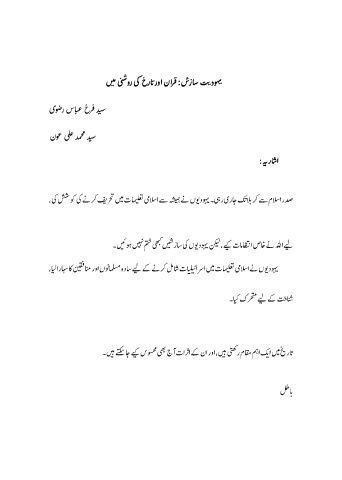 یہودیت سازش: قرآن اور تاریخ کی روشنی میں
سید فرخ عباس رضوی
سید محمد علی عون
اشاریہ:
صدر اسلام سے کربلا تک جاری رہی۔ یہودیوں نے ہمیشہ سے اسلامی تعلیمات میں تحریف کرنے کی کوشش کی،
لیے اللہ نے خاص انتظامات کیے، لیکن یہودیوں کی سازشیں کبھی ختم نہیں ہوئیں۔
یہودیوں نے اسلامی تعلیمات میں اسرائیلیات شامل کرنے کے لیے سادہ مسلمانوں اور منافقین کا سہارا لیا،
شناخت کے لیے متحرک کیا۔
تاریخ میں ایک اہم مقام رکھتی ہیں، اور ان کے اثرات آج بھی محسوس کیے جا سکتے ہیں۔
باطل